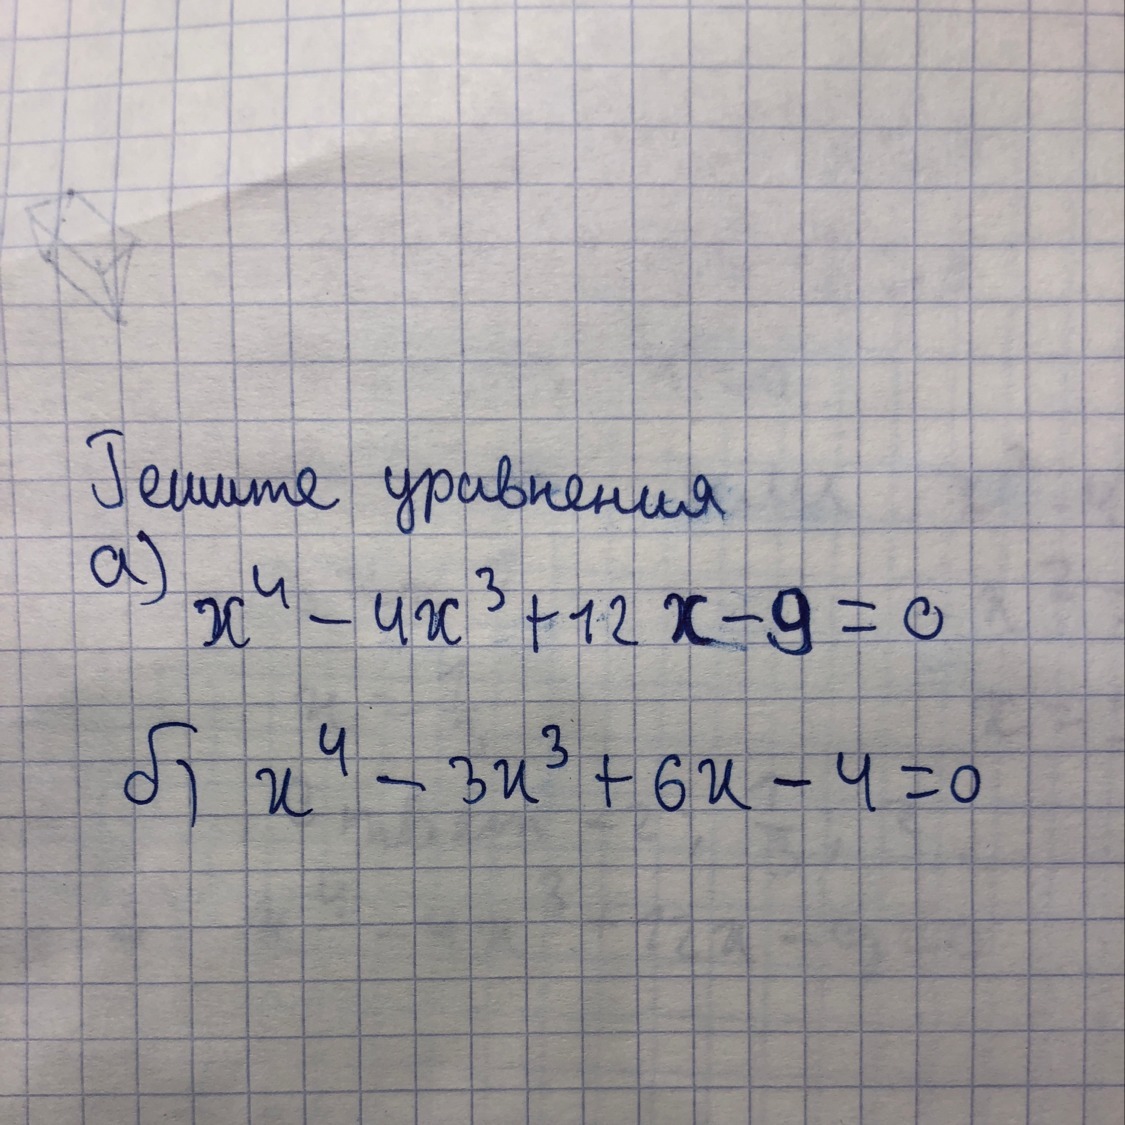 Решите уравнения
а)
x⁴ - 4x³ + 12x - 9 = 0
б) x⁴ - 3x³ + 6x - 4 = 0